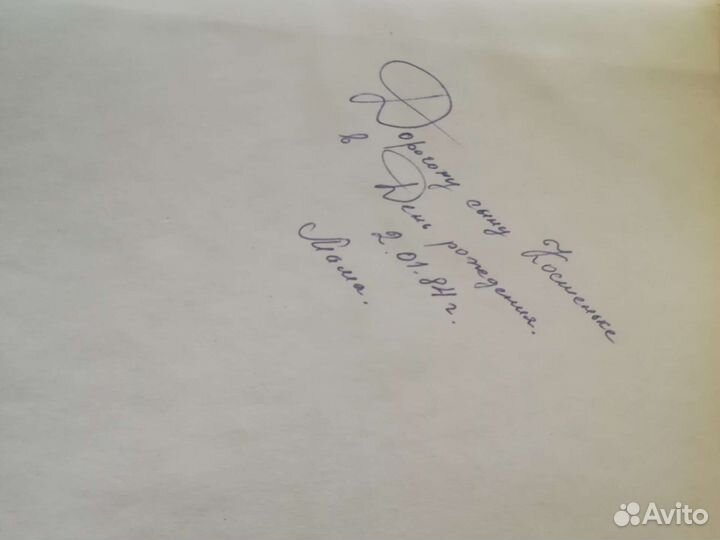 Дорогому сыну Костеньке
в День рождения.
2.01.84 г.
Мама.
Avito